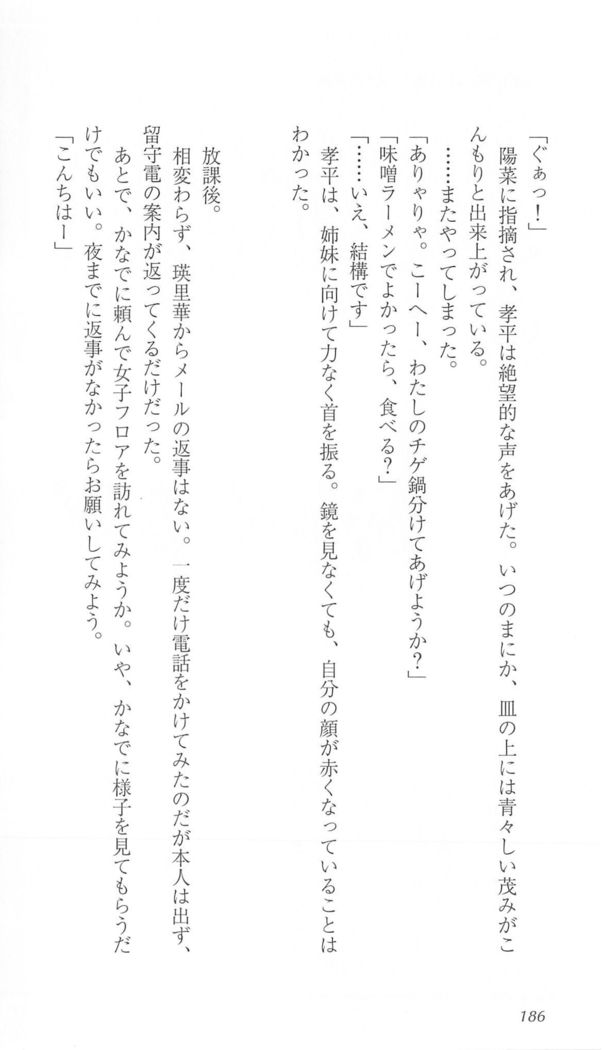 「ぐぁっ！」
　陽菜に指摘され、孝平は絶望的な声をあげた。いつのまにか、皿の上には青々しい茂みがこ
んもりと出来上がっている。
　……またやってしまった。
「ありゃりゃ。こーへー、わたしのチゲ鍋分けてあげようか？」
「味噌ラーメンでよかったら、食べる？」
「……いえ、結構です」
　孝平は、姉妹に向けて力なく首を振る。鏡を見なくても、自分の顔が赤くなっていることは
わかった。
　放課後。
　相変わらず、瑛里華からメールの返事はない。一度だけ電話をかけてみたのだが本人は出ず、
留守電の案内が返ってくるだけだった。
　あとで、かなでに頼んで女子フロアを訪れてみようか。いや、かなでに様子を見てもらうだ
けでもいい。夜までに返事がなかったらお願いしてみよう。
「こんちはー」
186